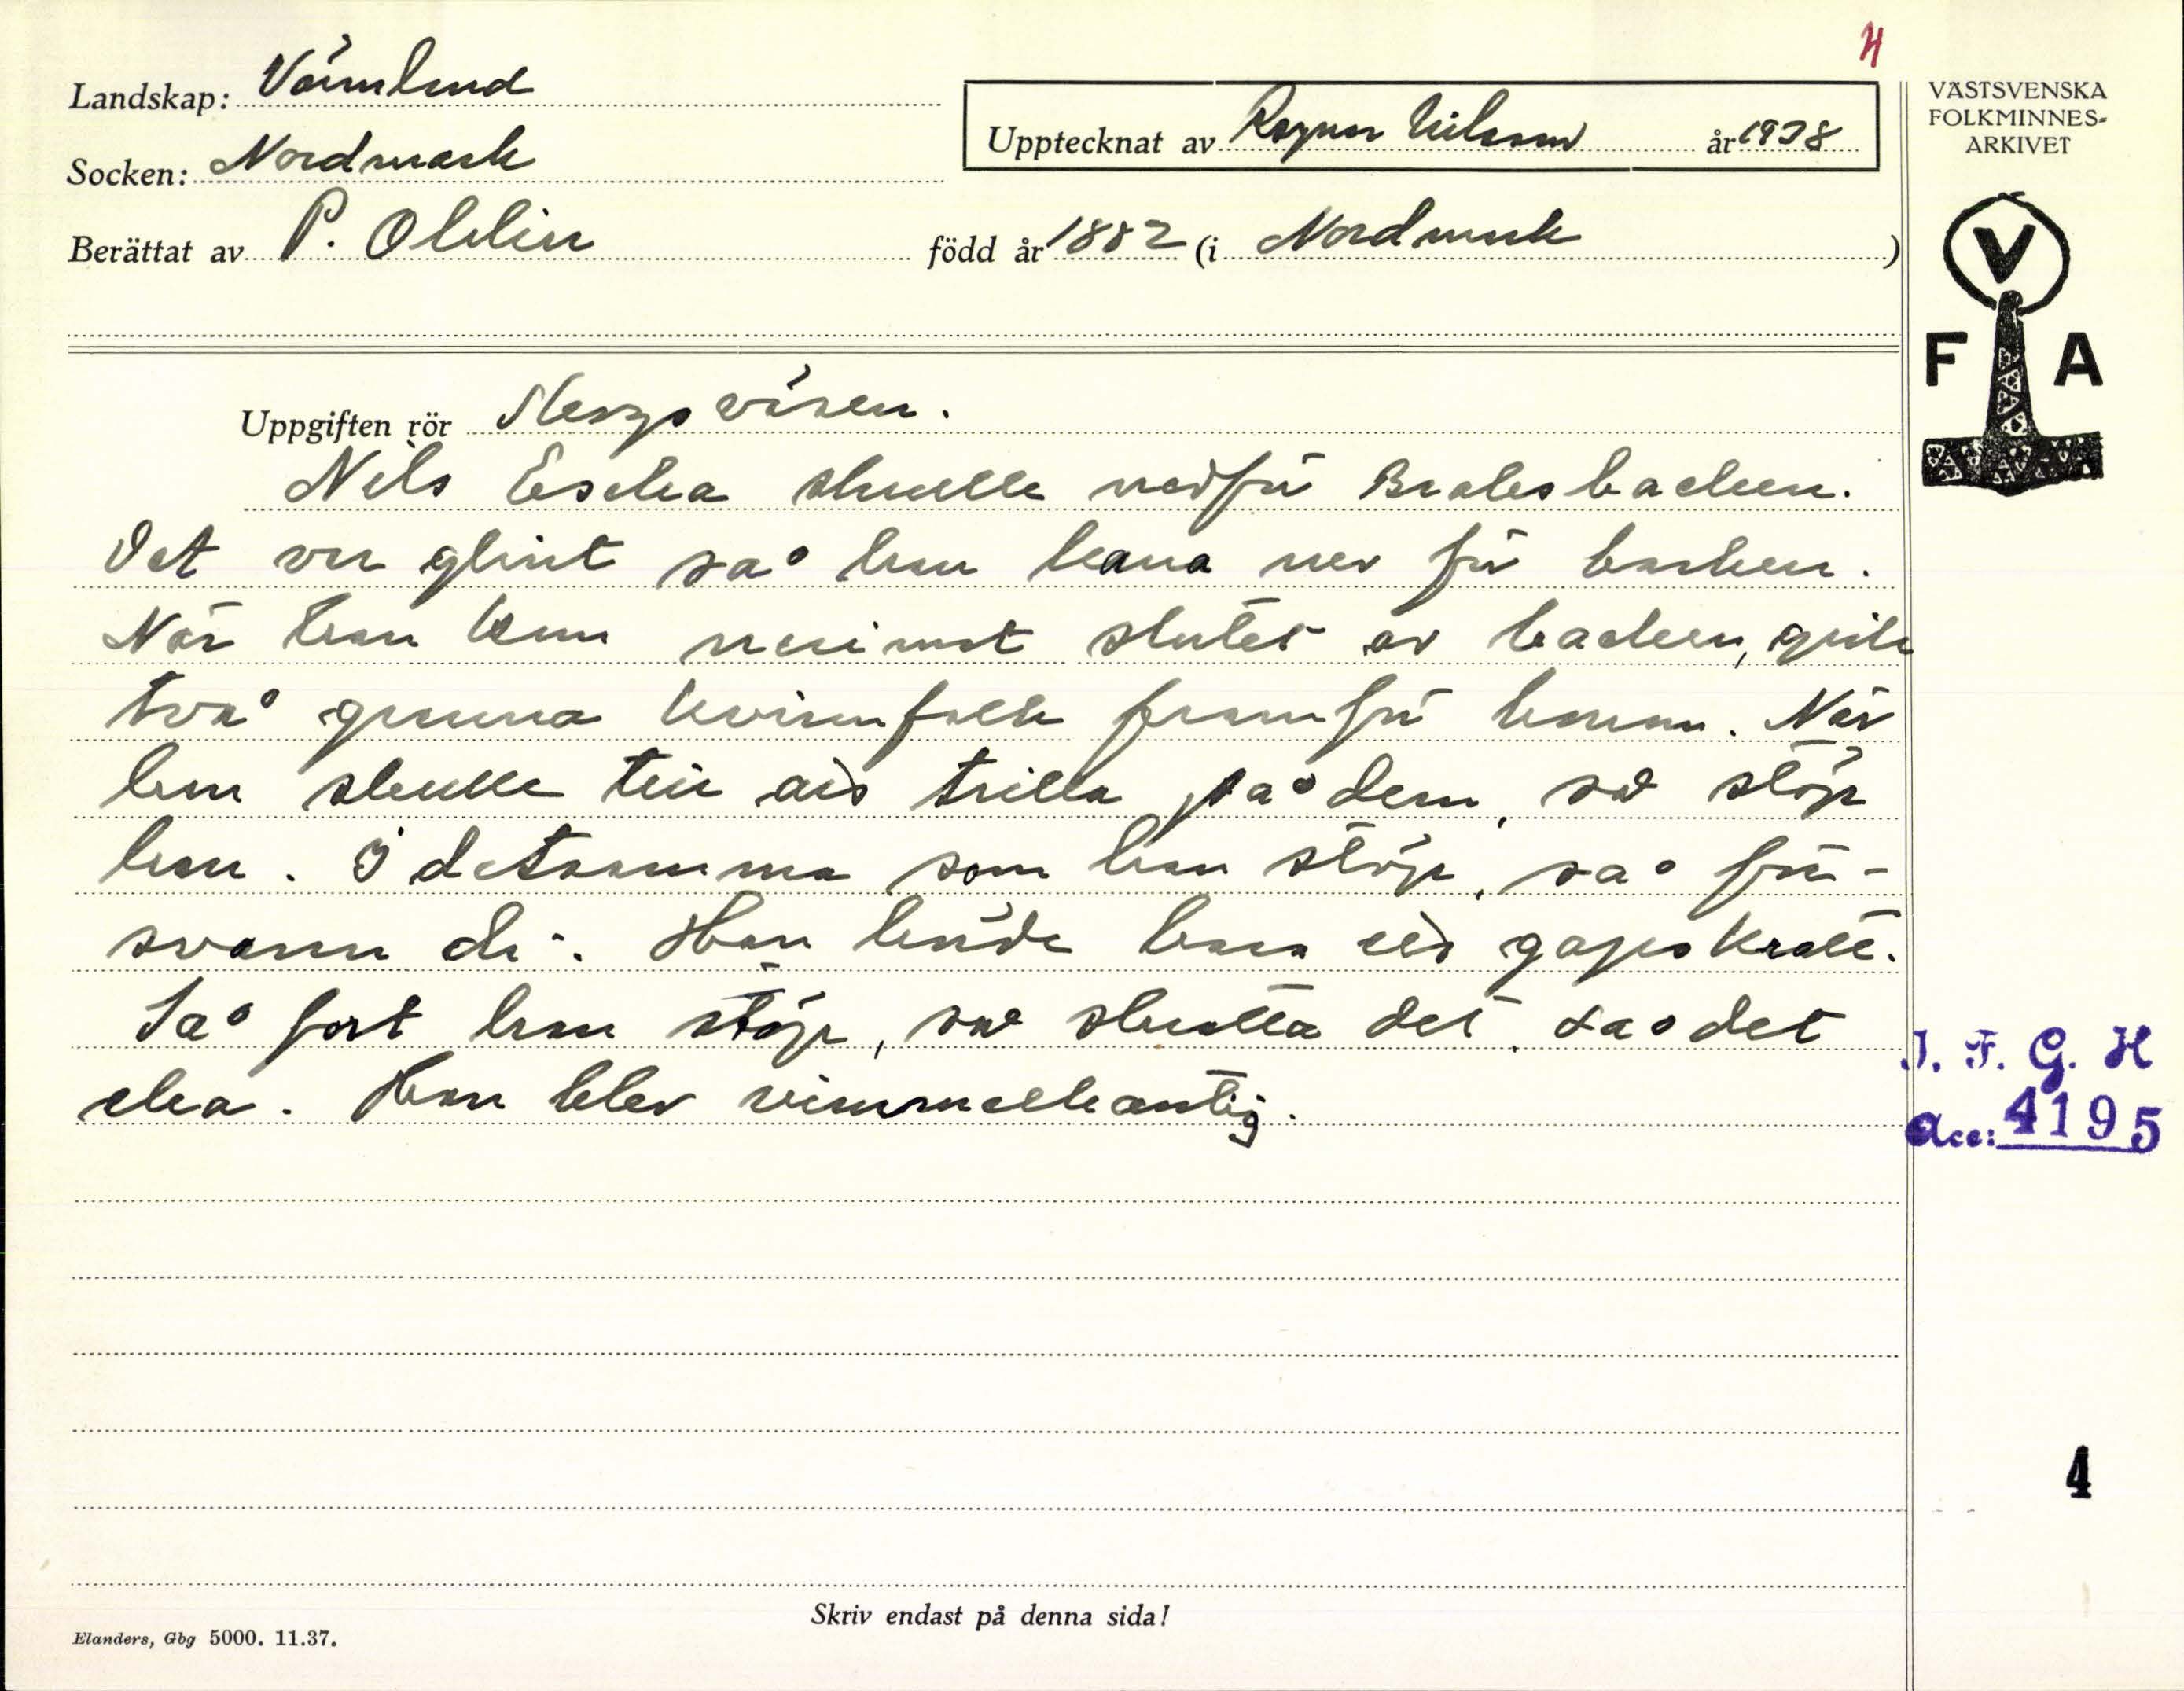 4
Landskap: Värmland
Upptecknat av Ragnar Nilsson år 1938
VÄSTSVENSKA
FOLKMINNES-
ARKIVET
Socken: Nordmark
Berättat av P. Ohlin född år 1882 (i Nordmark)
V
F A
Uppgiften rör Skogsväsen.
Nils Eska skulle nedför backen.
Det var glint så han kana ner för backen.
När han kom närimot slutet av backen, gick
två granna kvinnfolk framför honom. När
han skulle till att trilla på dem, så stöp
han. I detsamma som han stöp, så för-
svann di. Han hörde bara ett gapskratt.
Så fort han stöp, så skratta det, sa det
ska. Han blev vimmelkantig.
I. F. G. H
Acc: 4195
4
Skriv endast på denna sida!
Elanders, Gbg 5000. 11.37.